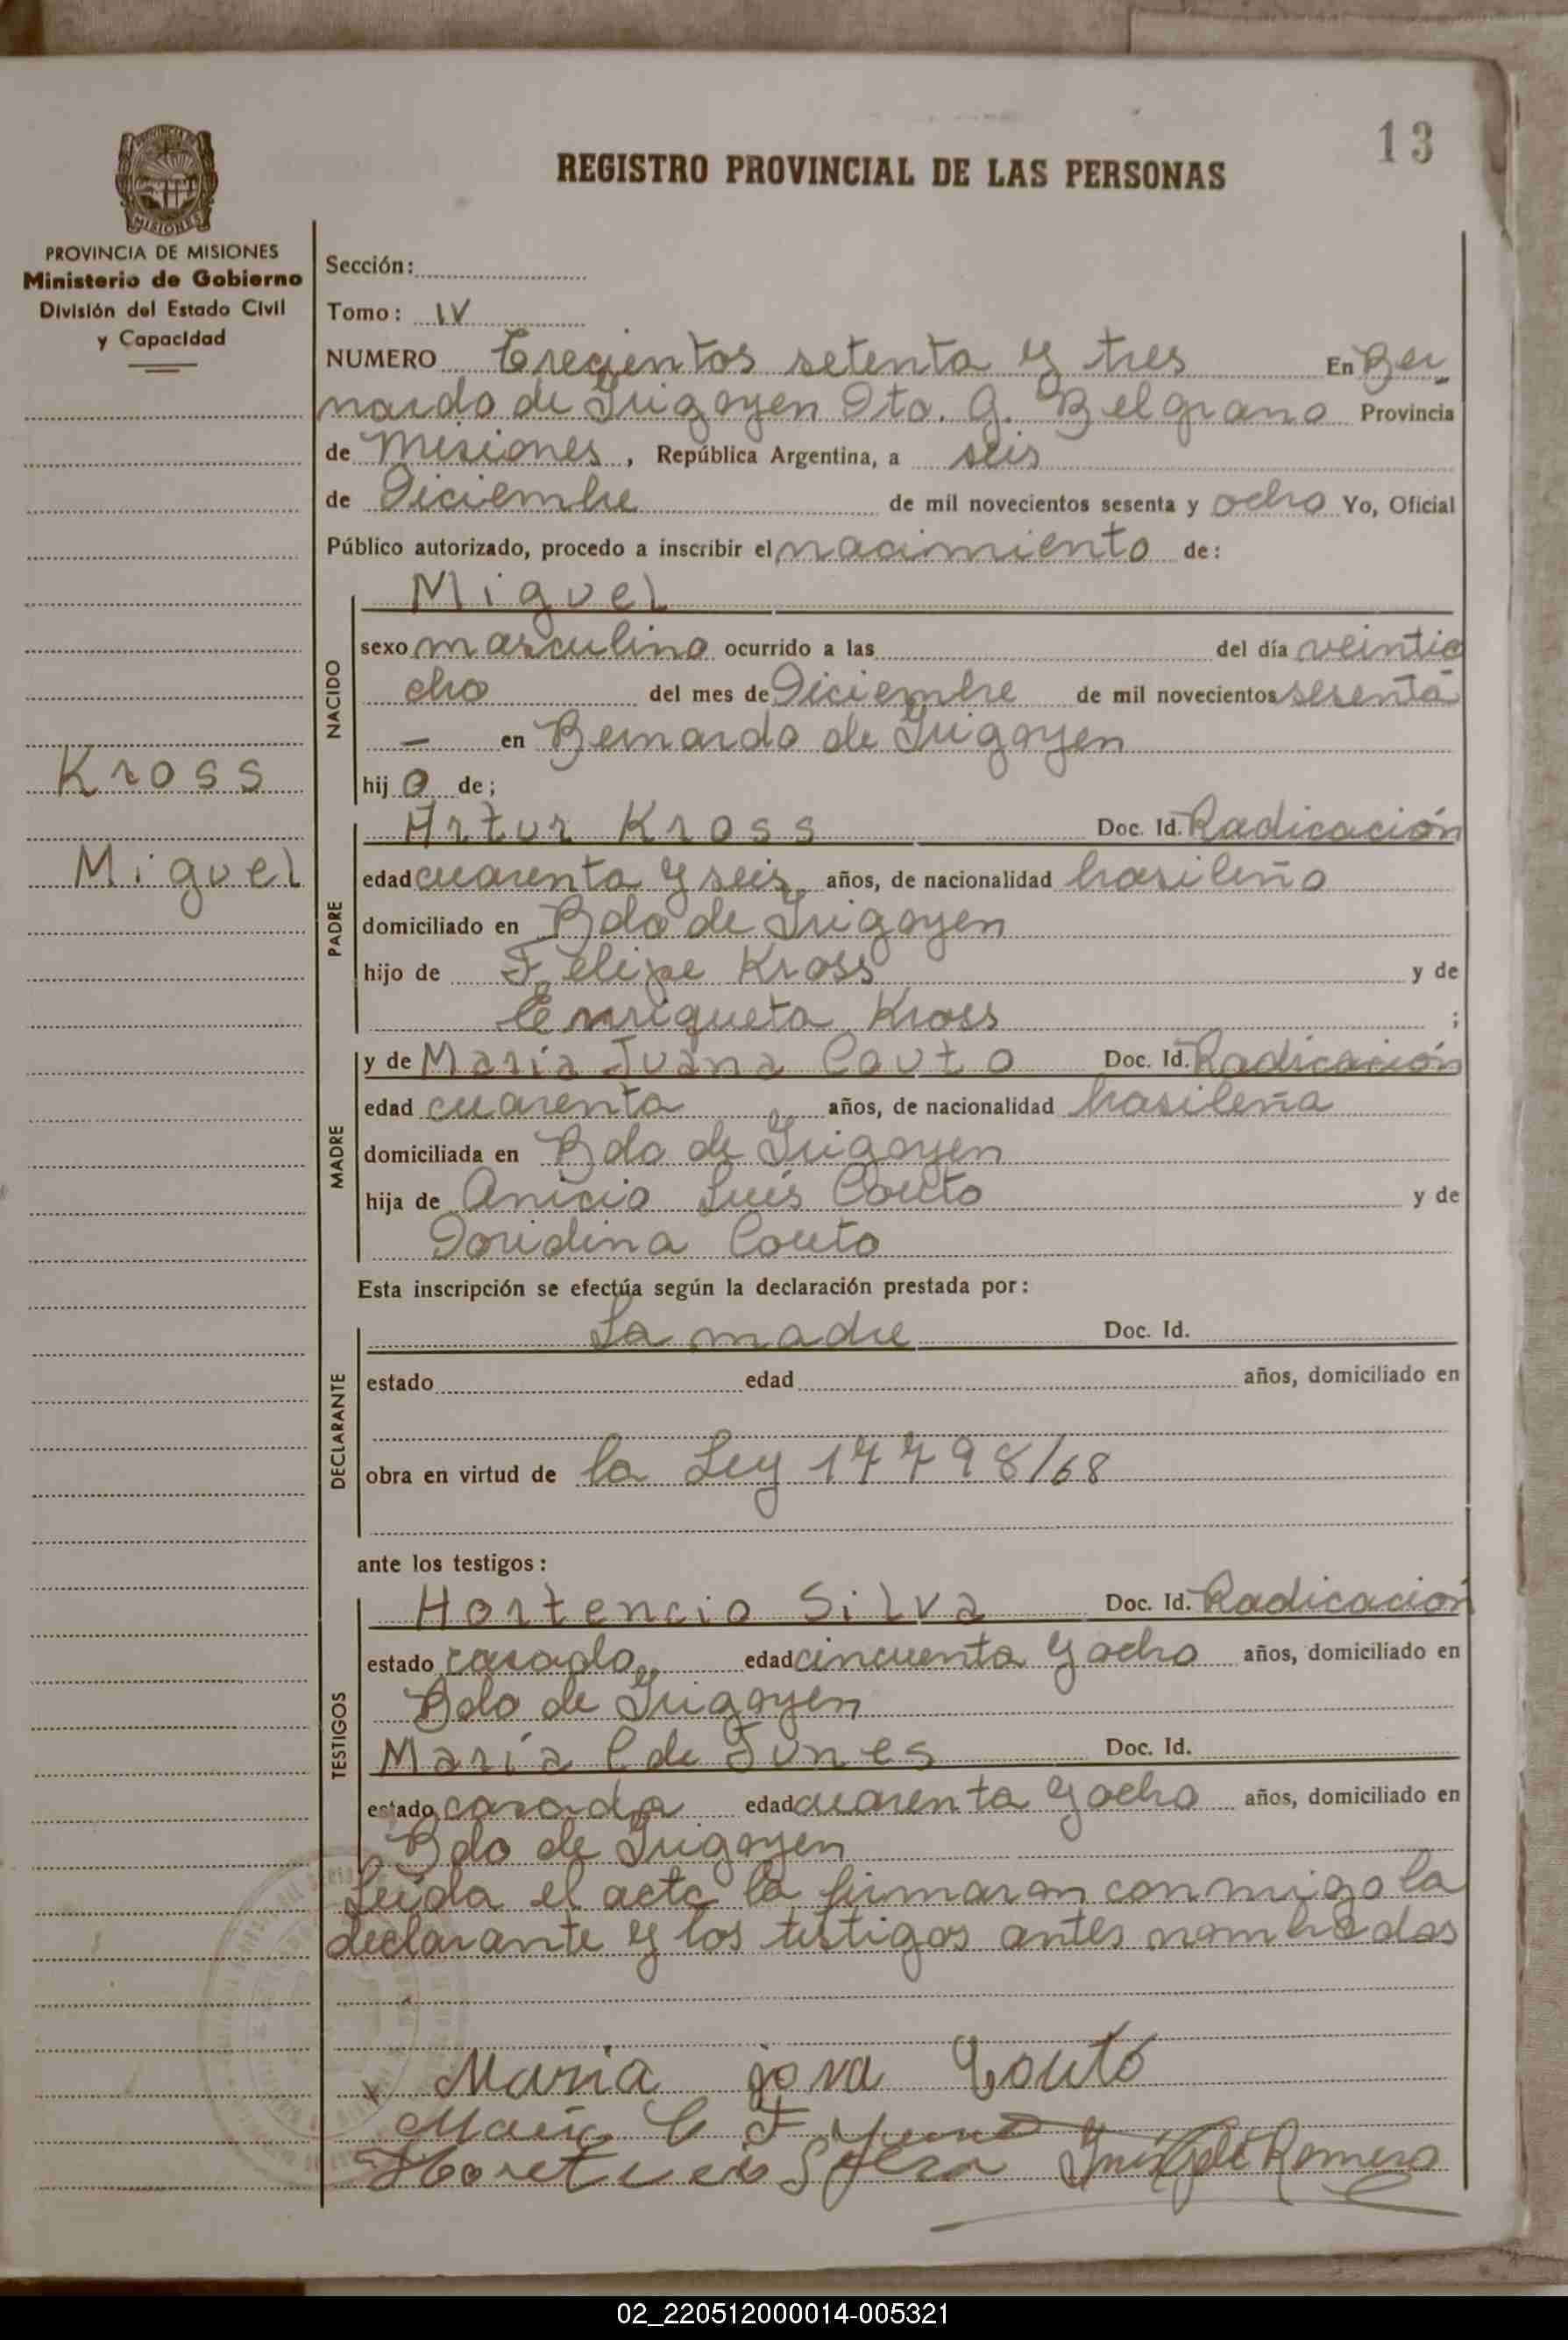 13
REGISTRO PROVINCIAL DE LAS PERSONAS
PROVINCIA DE MISIONES
Ministerio de Gobierno
División del Estado Civil
y Capacidad
Kross
Miguel
Sección:
Tomo: IV
NUMERO Trecientos setenta y tres En Ber
nardo de Irigoyen Dto. G. Belgrano Provincia
de Misiones, República Argentina, a seis
de Diciembre de mil novecientos sesenta y ocho Yo, Oficial
Público autorizado, procedo a inscribir el nacimiento de:
NACIDO
Miguel
sexo masculino ocurrido a las del día veintio
cho del mes de Diciembre de mil novecientos sesenta
— en Bernardo de Irigoyen
hijo de;
PADRE
Artur Kross Doc. Id. Radicación
edad cuarenta y seis años, de nacionalidad brasileño
domiciliado en Bdo de Irigoyen
hijo de Felipe Kross y de
Enriqueta Kross ;
MADRE
y de María Juana Couto Doc. Id. Radicación
edad cuarenta años, de nacionalidad brasileña
domiciliada en Bdo de Irigoyen
hija de Anicio Luís Couto y de
Doridina Couto
Esta inscripción se efectúa según la declaración prestada por:
DECLARANTE
La madre Doc. Id.
estado edad años, domiciliado en
obra en virtud de la Ley 17798/68
ante los testigos:
TESTIGOS
Hortencio Silva Doc. Id. Radicación
estado casado edad cincuenta y ocho años, domiciliado en
Bdo de Irigoyen
María C de Junes Doc. Id.
estado casada edad cuarenta y ocho años, domiciliado en
Bdo de Irigoyen
Leída el acta la firmaron conmigo la
declarante y los testigos antes nombrados
x Maria jova Couto
Maria C
Silva Romero
02_220512000014-005321